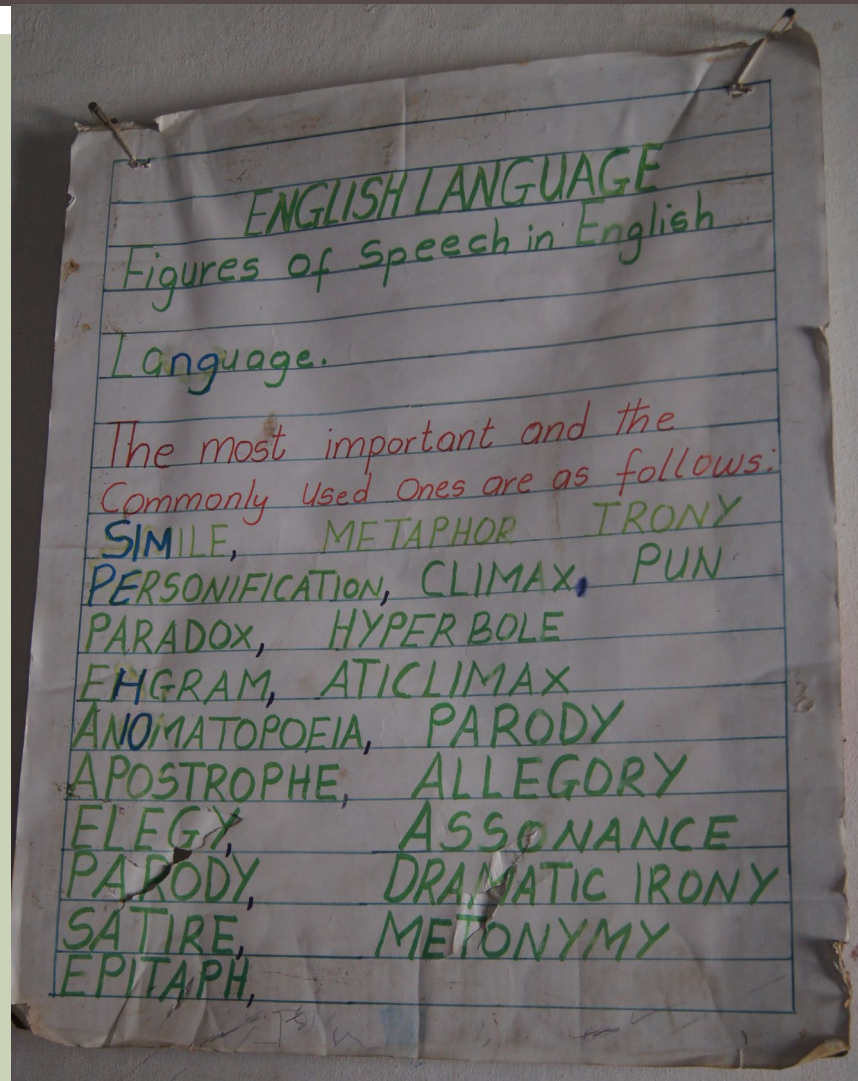 ENGLISH LANGUAGE
Figures of Speech in English
Language.
The most important and the
Commonly Used Ones are as follows:
SIMILE, METAPHOR IRONY
PERSONIFICATION, CLIMAX, PUN
PARADOX, HYPERBOLE
EHGRAM, ATICLIMAX
ANOMATOPOEIA, PARODY
APOSTROPHE, ALLEGORY
ELEGY, ASSONANCE
PARODY, DRAMATIC IRONY
SATIRE, METONYMY
EPITAPH,